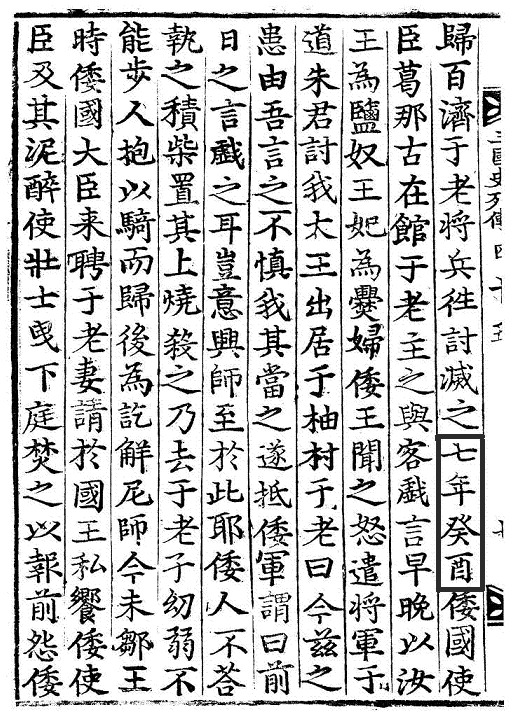 三國史列傳四
歸百濟于老將兵徃討滅之七年癸酉倭國使
臣葛那古在館于老主之與客戱言早晚以汝
王為鹽奴王妃為爨婦倭王聞之怒遣將軍于
道朱君討我太王出居于柚村于老曰今兹之
患由吾言之不慎我其當之遂抵倭軍謂曰前
日之言戱之耳豈意興師至於此耶倭人不荅
執之積柴置其上燒殺之乃去于老子幼弱不
能歩人抱以騎而歸後為訖解尼師今未鄒王
時倭國大臣来聘于老妻請於國王私饗倭使
臣及其泥醉使壯士曵下庭焚之以報前怨倭